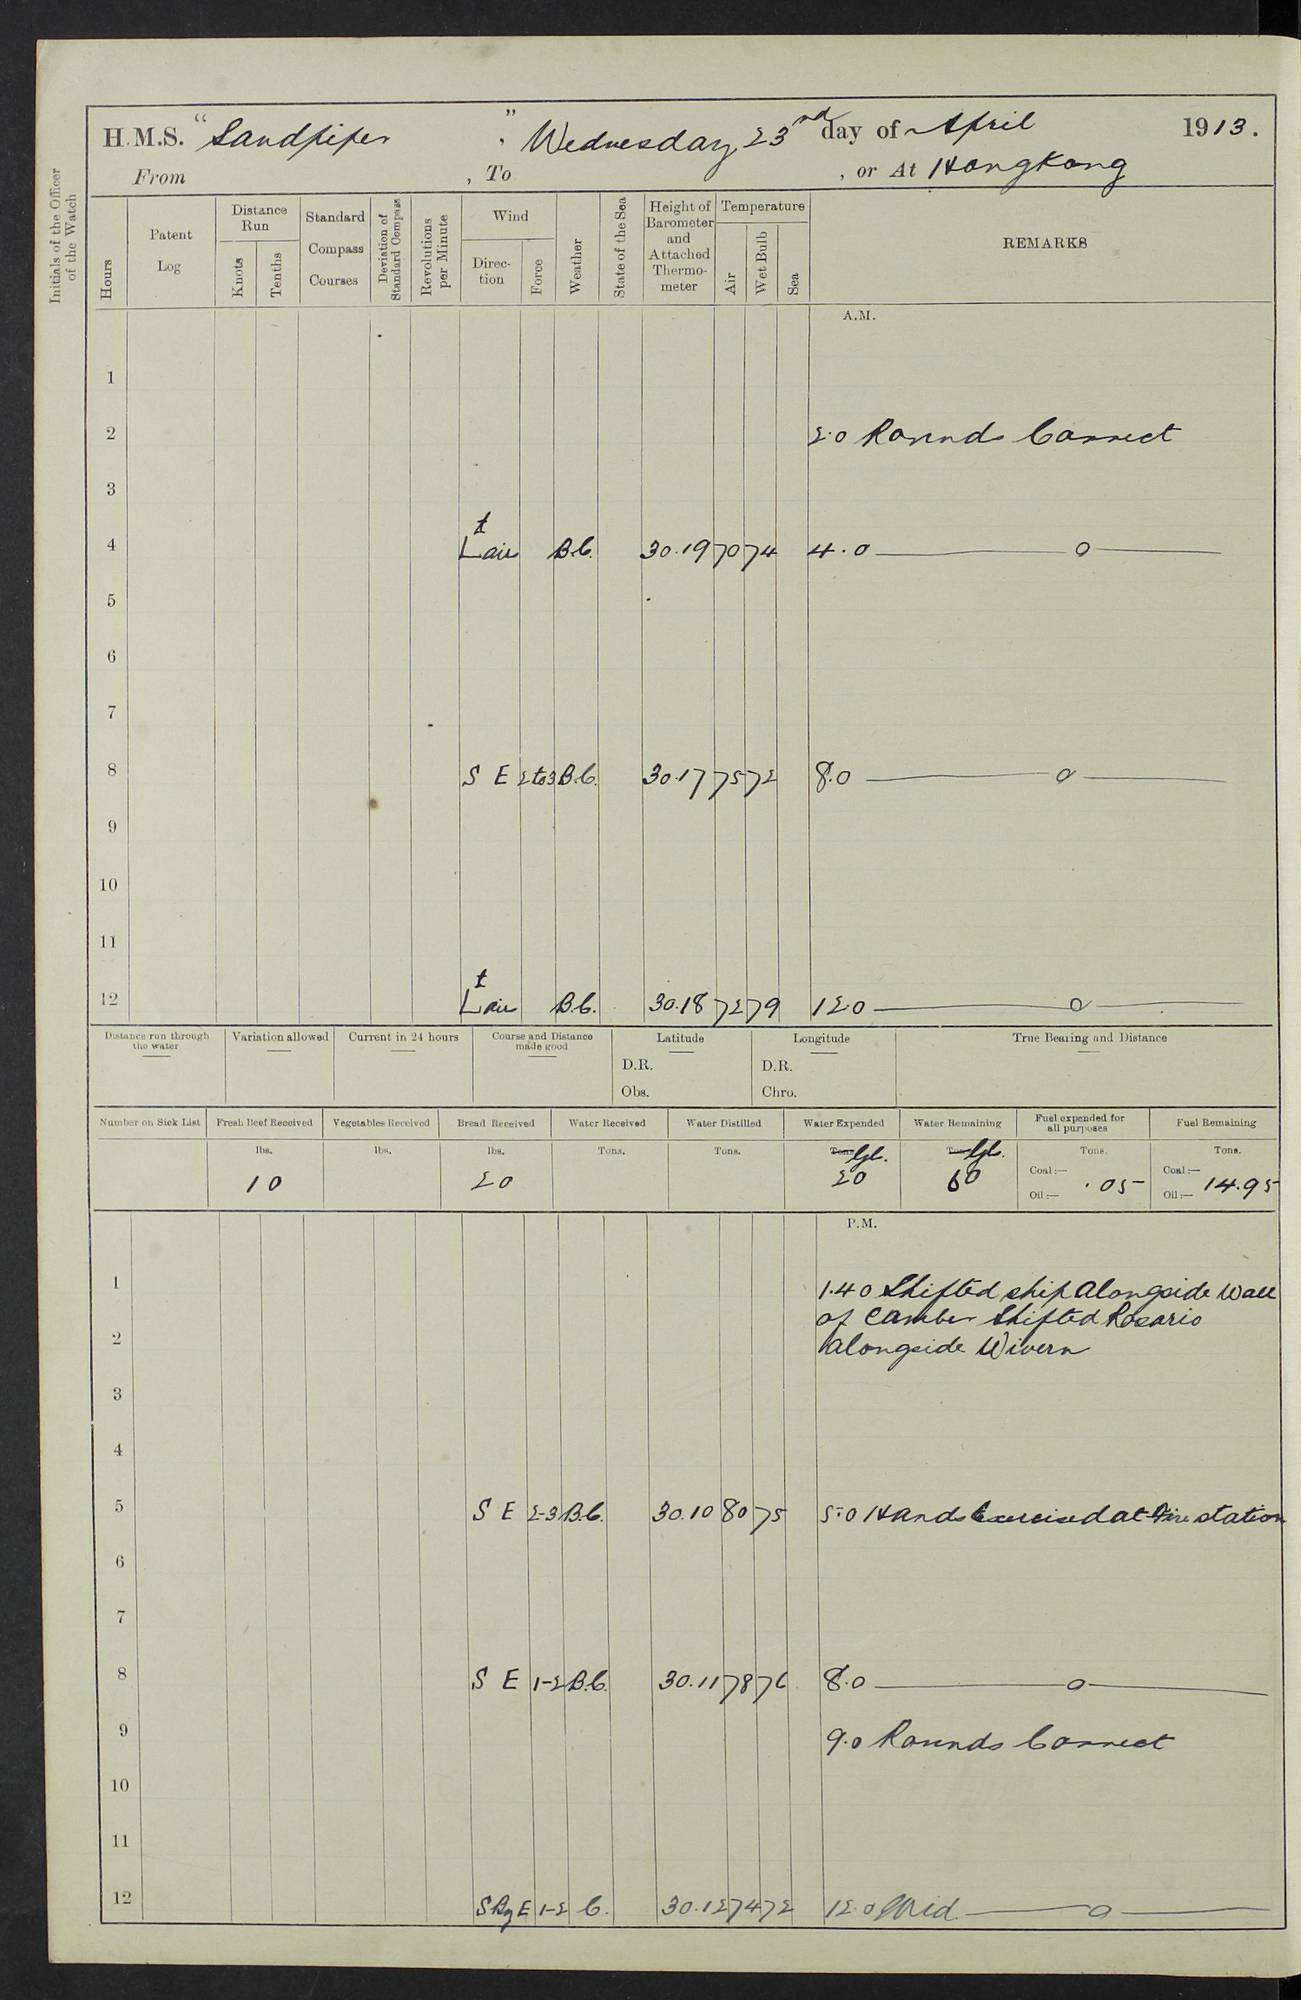 H.M.S. "Sandpiper", Wednesday 23rd day of April 1913.
From , To , or At Hongkong
Initials of the Officer of the Watch
Hours
Patent Log
Distance Run
Knots
Tenths
Standard Compass Courses
Deviation of Standard Compass
Revolutions per Minute
Wind
Direction
Force
Weather
State of the Sea
Height of Barometer and Attached Thermometer
Temperature
Air
Wet Bulb
Sea
REMARKS
A.M.
1
2 2.0 Rounds Correct
3
4 Lt air B.C. 30.19 70 74 4.0 ——o——
5
6
7
8 S E 2 to 3 B.C. 30.17 75 72 8.0 ——o——
9
10
11
12 Lt air B.C. 30.18 72 79 12.0 ——o——
Distance run through the water
Variation allowed
Current in 24 hours
Course and Distance made good
Latitude
D.R.
Obs.
Longitude
D.R.
Chro.
True Bearing and Distance
Number on Sick List
Fresh Beef Received
lbs.
10
Vegetables Received
lbs.
Bread Received
lbs.
20
Water Received
Tons.
Water Distilled
Tons.
Water Expended
Tons
20
Water Remaining
Tons
60
Fuel expended for all purposes
Tons.
Coal:— .05
Oil:—
Fuel Remaining
Tons.
Coal:— 14.95
Oil:—
P.M.
1 1.40 Shifted ship alongside Wall
of Camber Shifted Rosario
2 alongside Wivern
3
4
5 S E 2-3 B.C. 30.10 80 75 5.0 Hands Exercised at Fire station
6
7
8 S E 1-2 B.C. 30.11 78 76 8.0 ——o——
9 9.0 Rounds Correct
10
11
12 S By E 1-2 C. 30.12 74 72 12.0 Mid ——o——